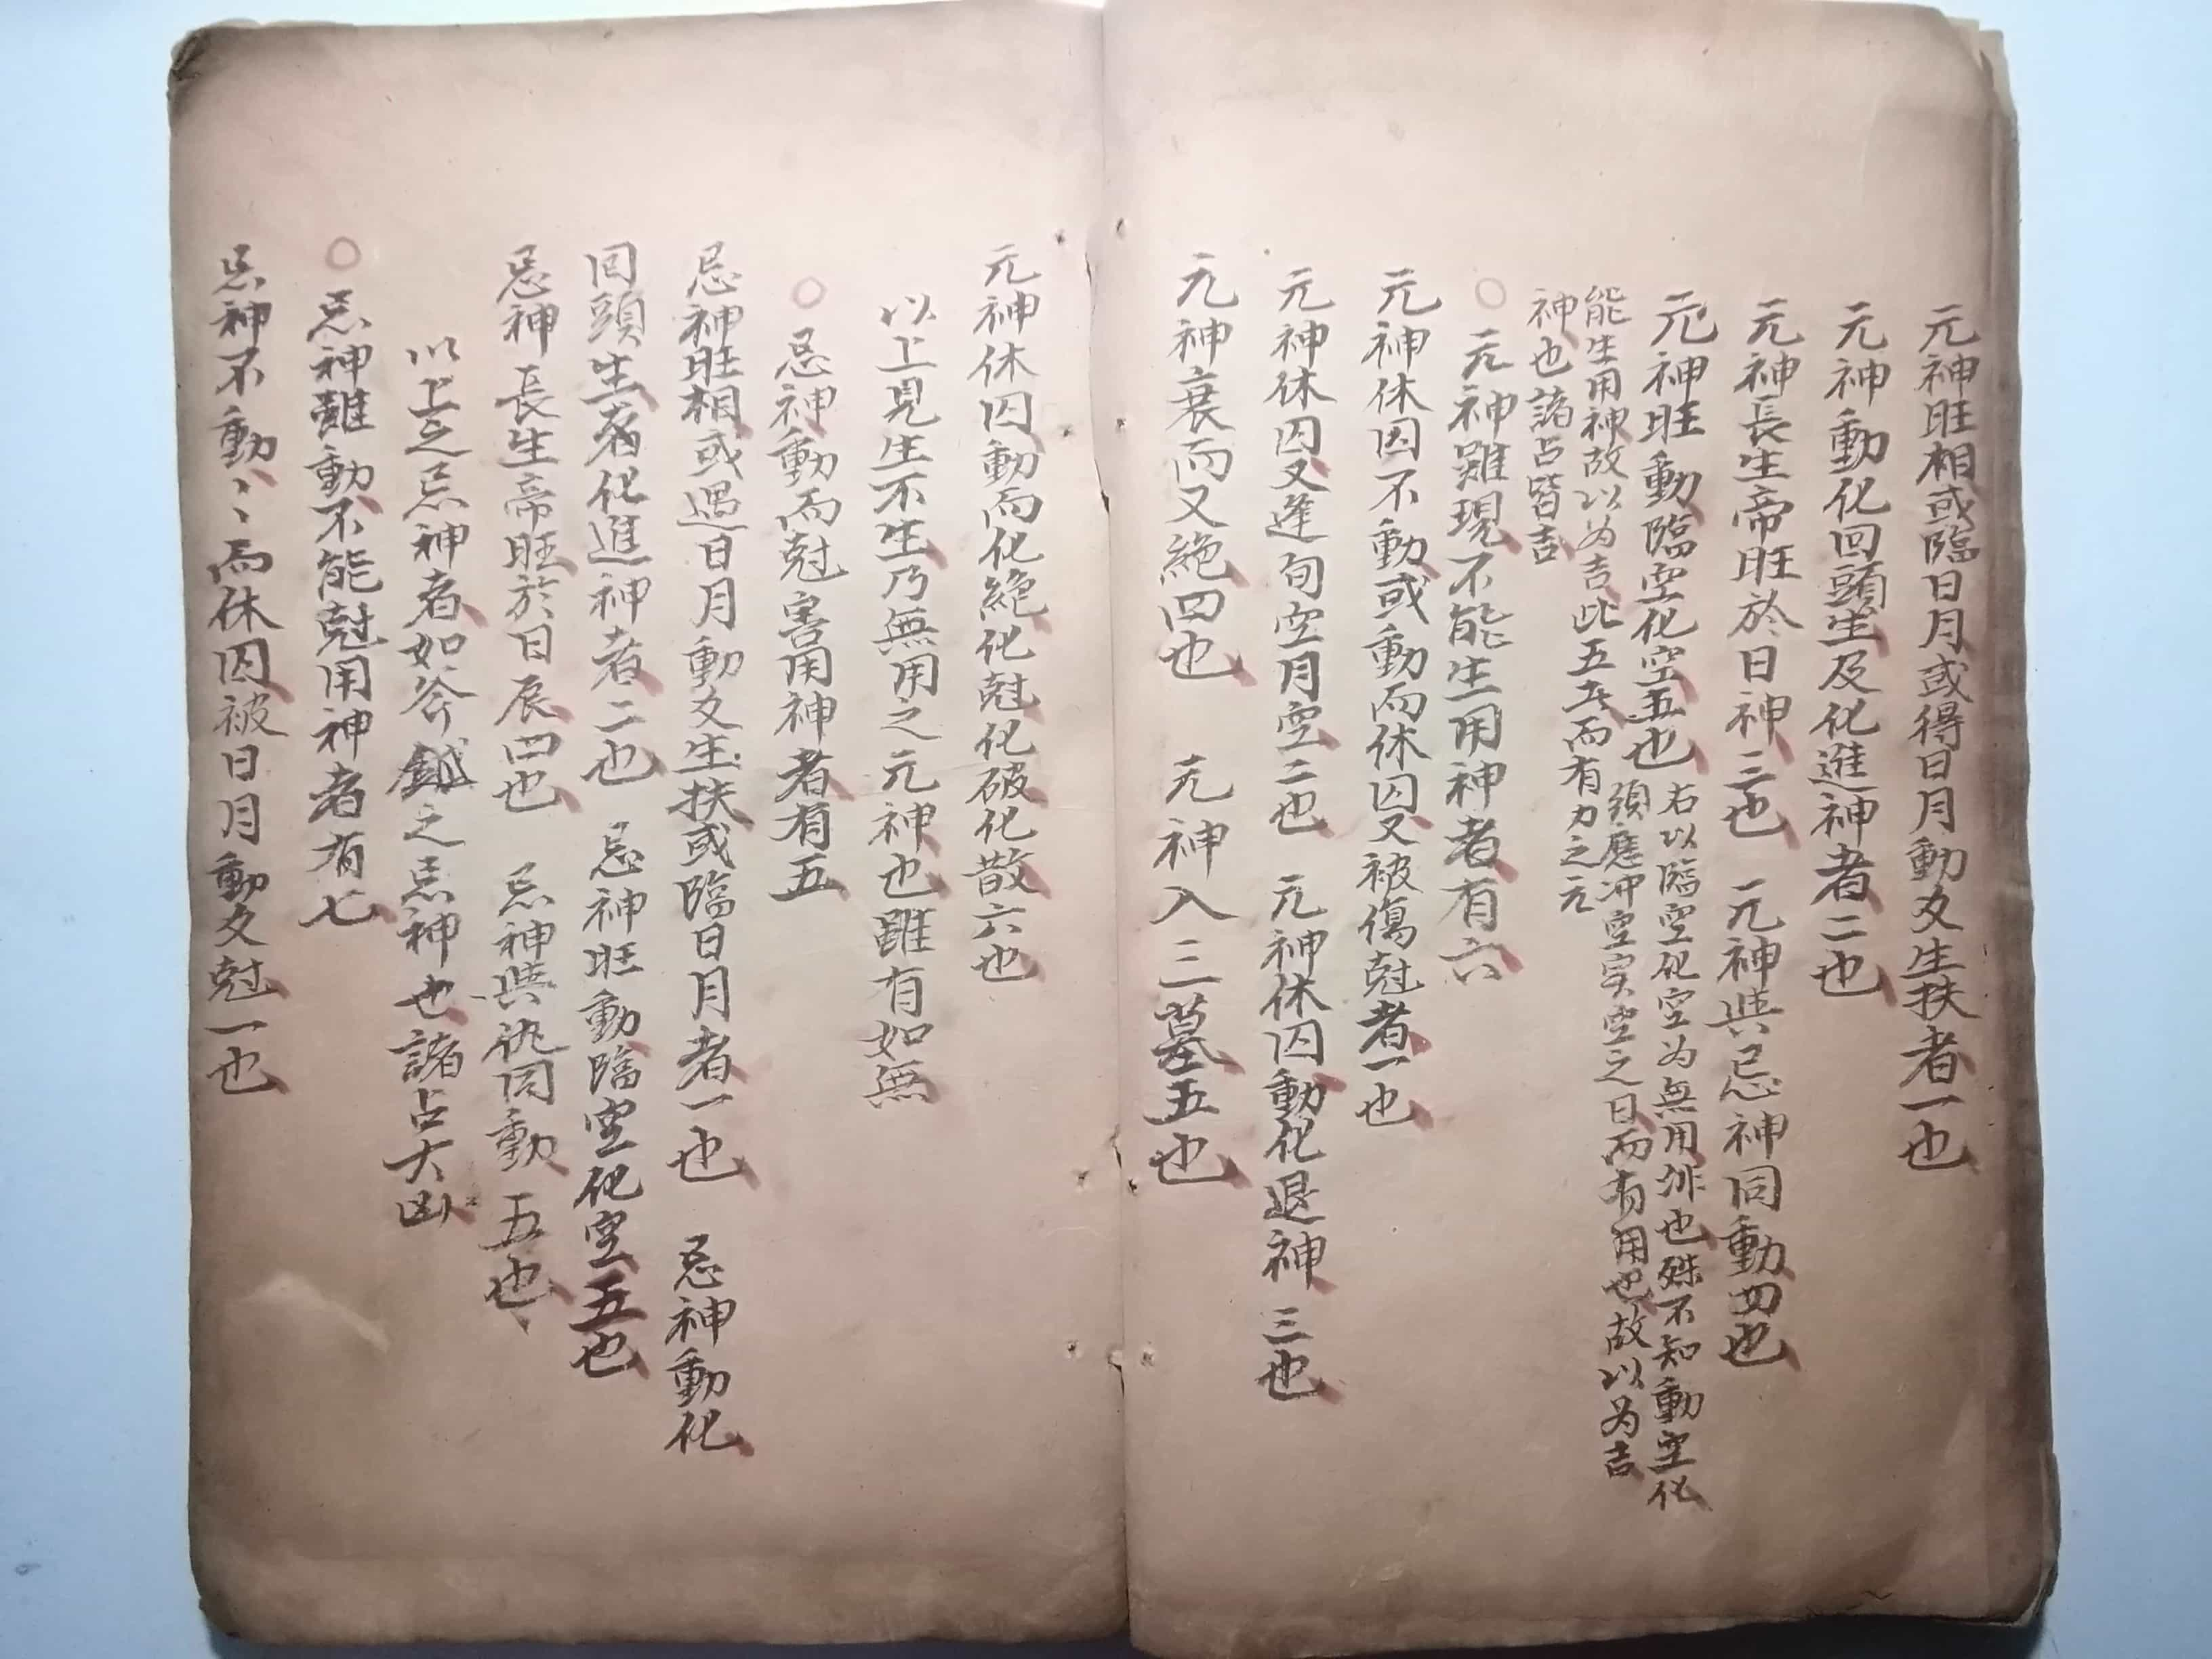 元神旺相或臨日月或得日月動爻生扶者一也
元神動化回頭生及化進神者二也
元神長生帝旺於日神三也　元神與忌神同動四也
元神旺動臨空化空五也
右以臨空化空为無用非也殊不知動空化
須應冲空实空之日而有用也故以为吉
能生用神故以为吉此五者而有力之元
神也諸占皆吉
○元神雖現不能生用神者有六
元神休囚不動或動而休囚又被傷尅者一也
元神休囚又逢旬空月空二也　元神休囚動化退神三也
元神衰而又絶四也　元神入三墓五也
元神休囚動而化絶化尅化破化散六也
以上見生不生乃無用之元神也雖有如無
○忌神動而尅害用神者有五
忌神旺相或遇日月動爻生扶或臨日月者一也　忌神動化
回頭生者化進神者二也　忌神旺動臨空化空五也
忌神長生帝旺於日辰四也　忌神與仇同動五也
以上之忌神者如斧鉞之忌神也諸占大凶
○忌神雖動不能尅用神者有七
忌神不動、、而休囚被日月動爻尅一也